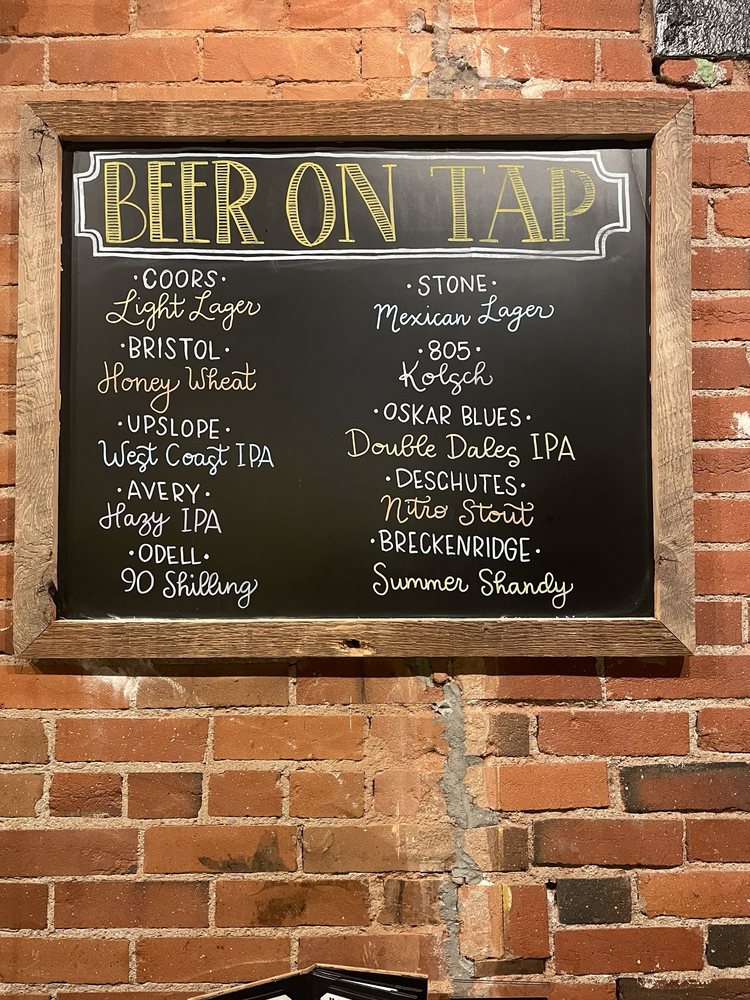 BEER ON TAP
·COORS·
Light Lager
·BRISTOL·
Honey Wheat
·UPSLOPE·
West Coast IPA
·AVERY·
Hazy IPA
·ODELL·
90 Shilling
·STONE·
Mexican Lager
·805·
Kolsch
·OSKAR BLUES·
Double Dales IPA
·DESCHUTES·
Nitro Stout
·BRECKENRIDGE·
Summer Shandy